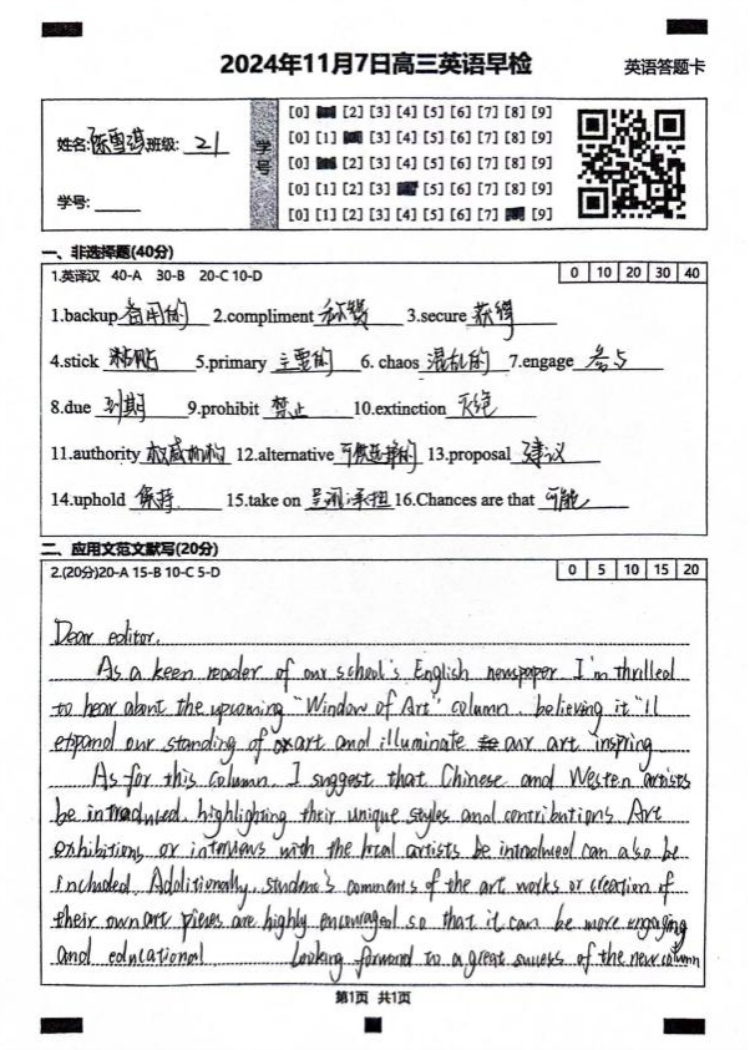 2024年11月7日高三英语早检
英语答题卡
姓名:陈雪琪 班级: 21
学号:
学号
[0] [2] [3] [4] [5] [6] [7] [8] [9]
[0] [1] [3] [4] [5] [6] [7] [8] [9]
[0] [2] [3] [4] [5] [6] [7] [8] [9]
[0] [1] [2] [3] [5] [6] [7] [8] [9]
[0] [1] [2] [3] [4] [5] [6] [7] [9]
一、非选择题(40分)
1.英译汉 40-A 30-B 20-C 10-D
0 10 20 30 40
1.backup 备用的 2.compliment 称赞 3.secure 获得
4.stick 粘贴 5.primary 主要的 6. chaos 混乱的 7.engage 参与
8.due 到期 9.prohibit 禁止 10.extinction 灭绝
11.authority 权威机构 12.alternative 可供选择的 13.proposal 建议
14.uphold 保持 15.take on 呈现;承担 16.Chances are that 可能
二、应用文范文默写(20分)
2.(20分)20-A 15-B 10-C 5-D
0 5 10 15 20
Dear editor,
As a keen reader of our school's English newspaper I'm thrilled
to hear about the upcoming "Window of Art" column, believing it'll
expand our standing of art and illuminate our art inspring
As for this column, I suggest that Chinese and Westen artists
be introduced, highlighting their unique styles and contributions Art
exhibitions or interviews with the local artists be introduced can also be
included. Additionally, student's comments of the art works or creation of
their own art pieces are highly encouraged so that it can be more engaging
and educational Looking forward to a great success of the new column
第1页 共1页